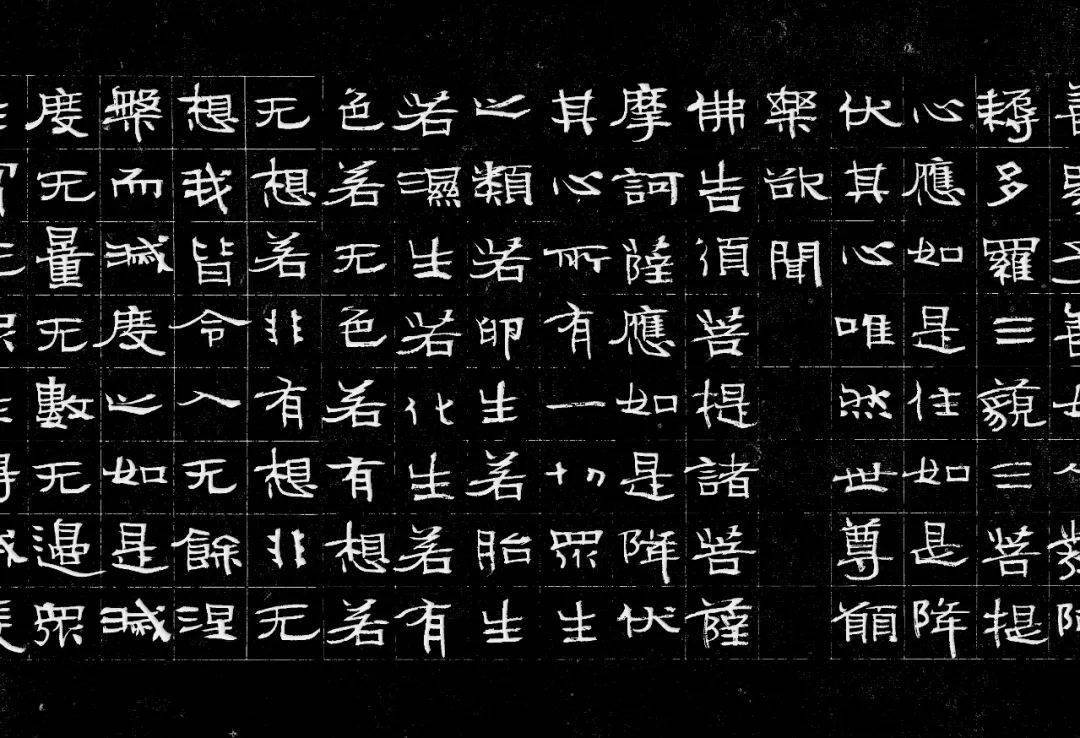 耨多羅三藐三菩提
心應如是住如是降
伏其心唯然世尊願
樂欲聞
佛告須菩提諸菩薩
摩訶薩應如是降伏
其心所有一切眾生
之類若卵生若胎生
若濕生若化生若有
色若无色若有想若
无想若非有想非无
想我皆令入无餘涅
槃而滅度之如是滅
度无量无數无邊眾